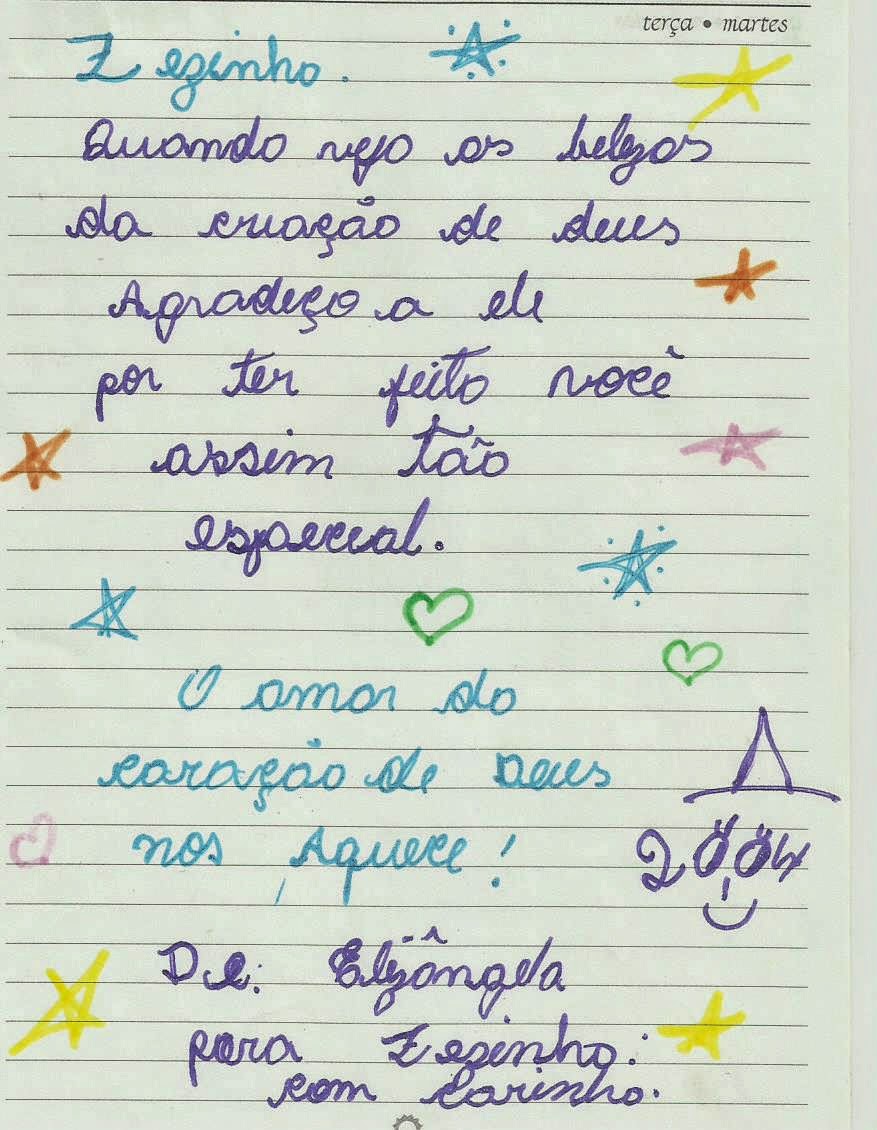 terça • martes
Zezinho.
Quando vejo as belezas
da criação de deus
Agradeço a ele
por ter feito você
assim tão
especial.
O amor do
coração de Deus
nos Aquece!
2004
De: Elizângela
para Zezinho.
com Carinho.